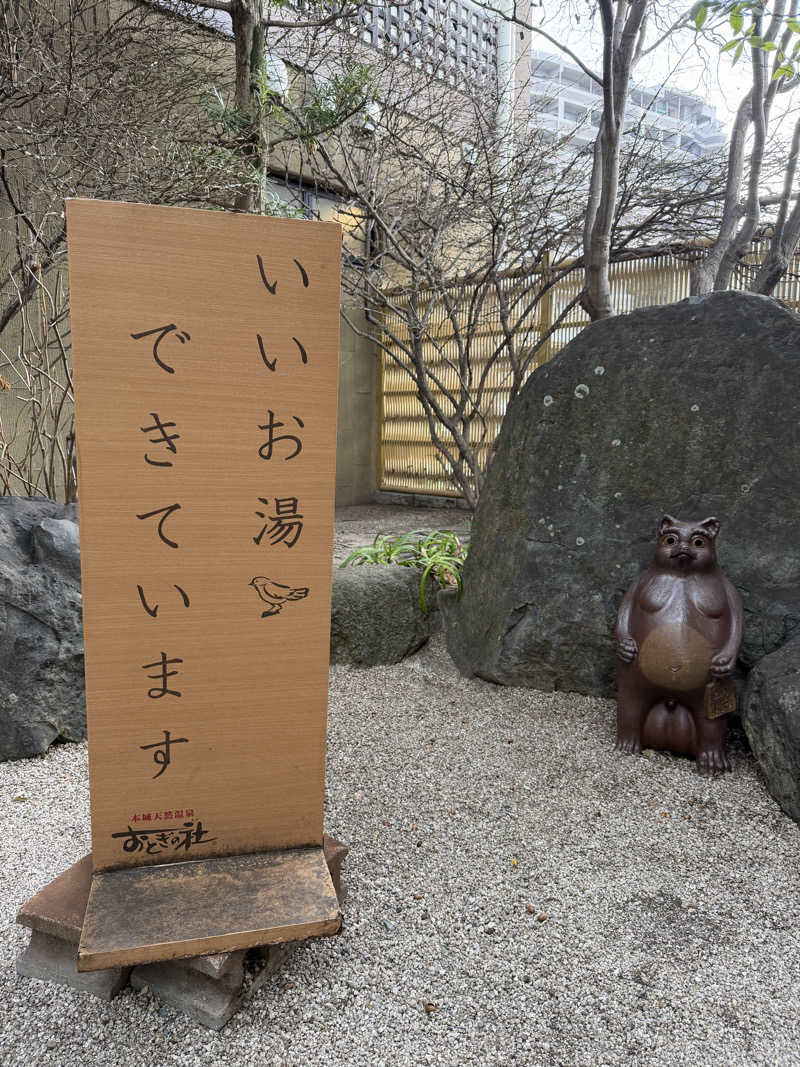 いいお湯
できています
本城天然温泉
おとぎの杜